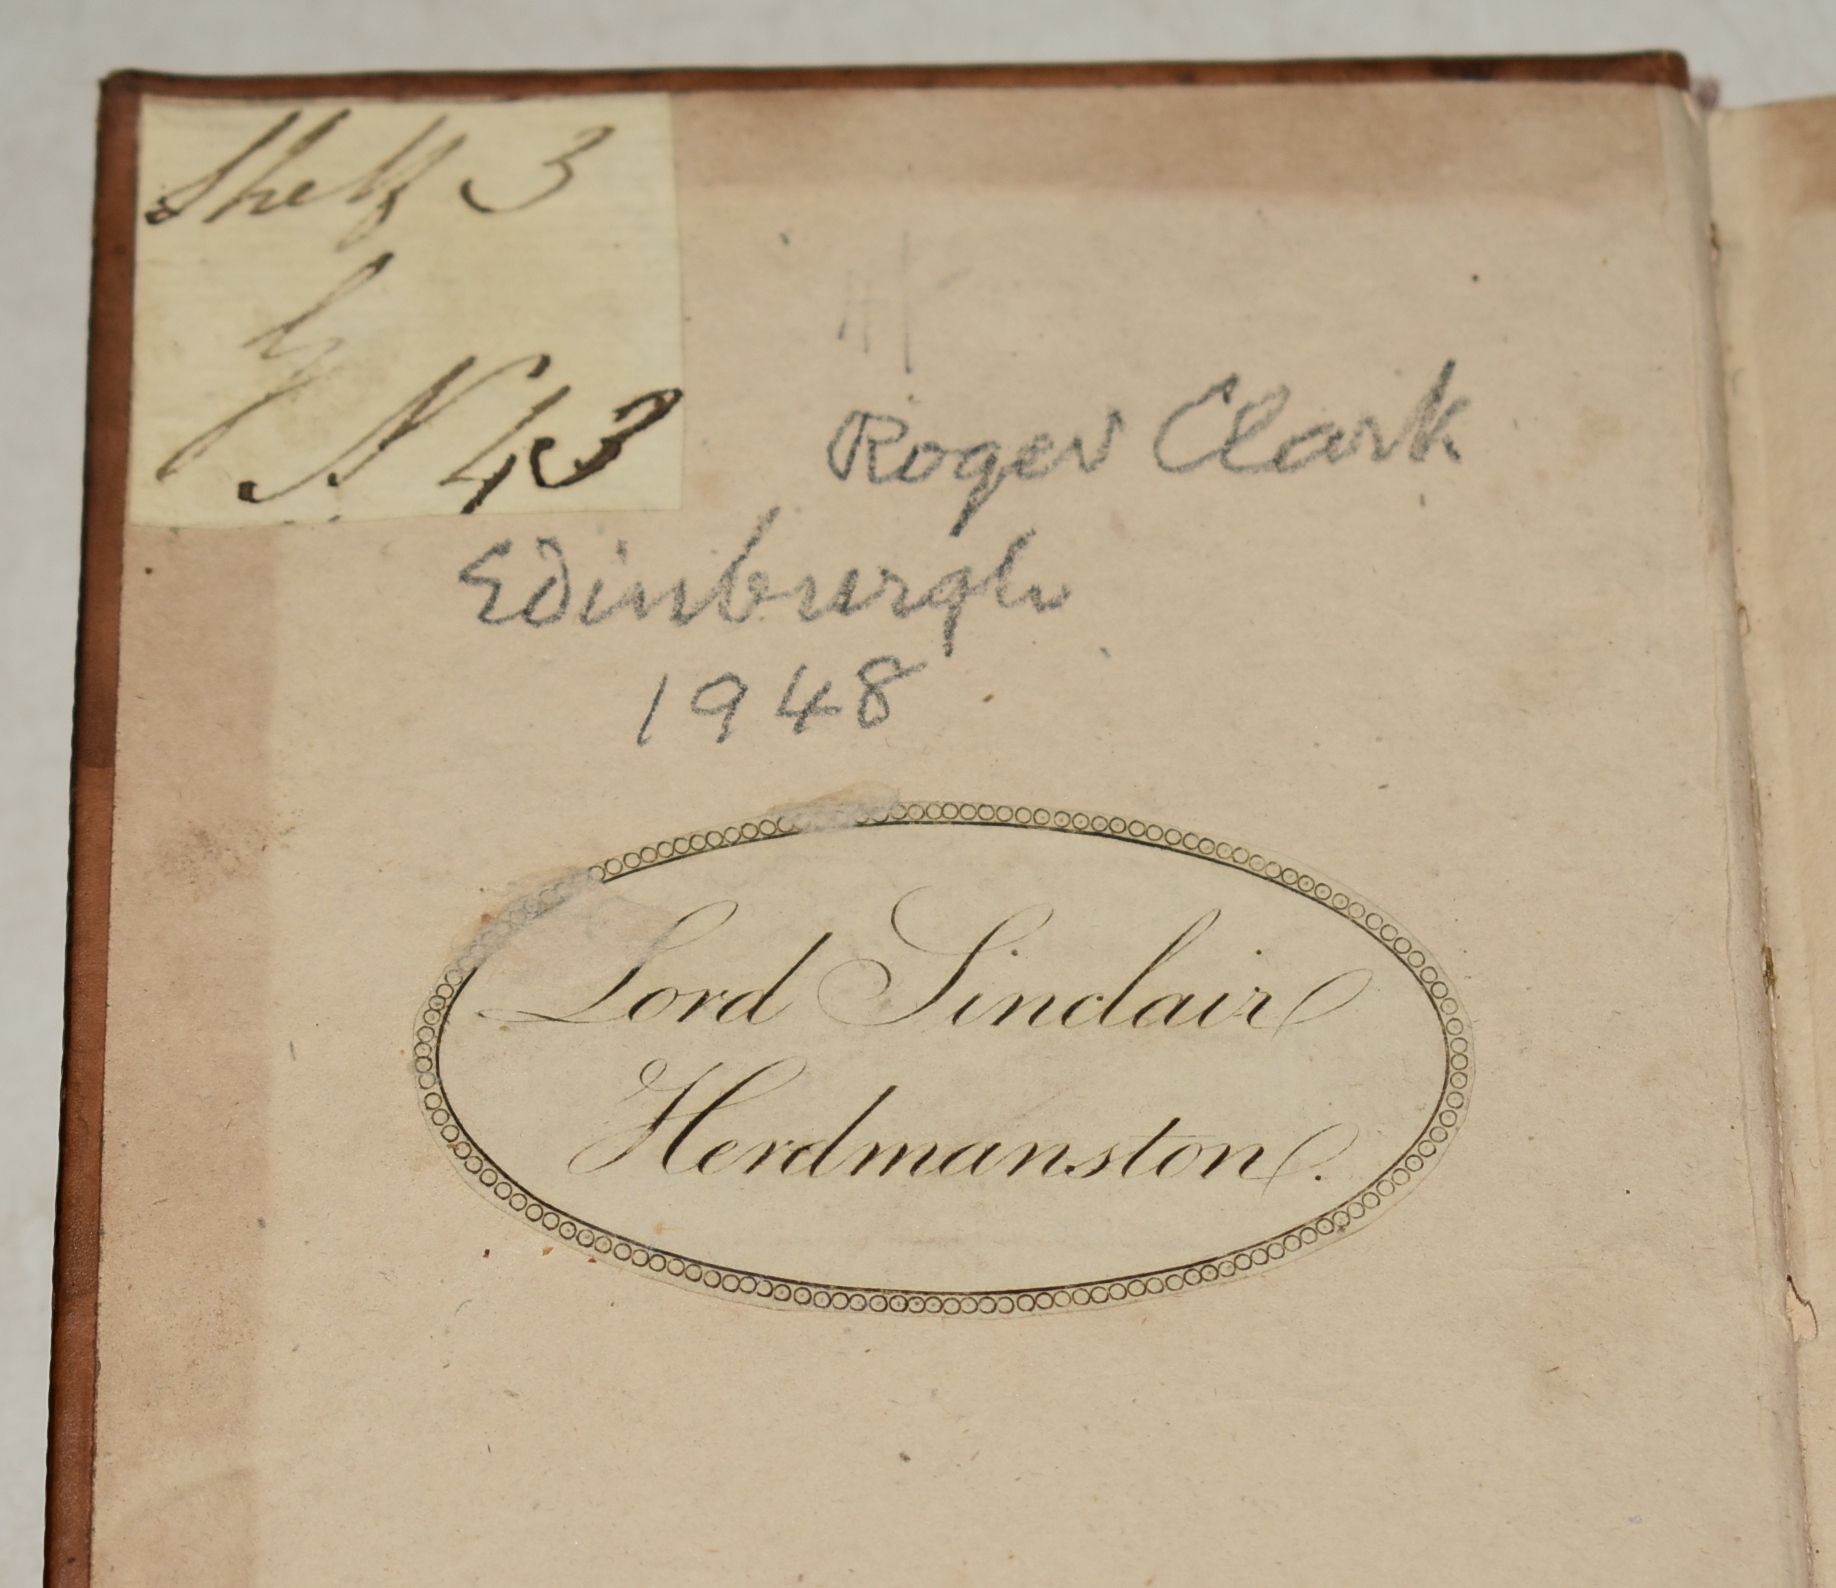 Shelf 3
N 43
Roger Clark
Edinburgh
1948
Lord Sinclair
Herdmanston.